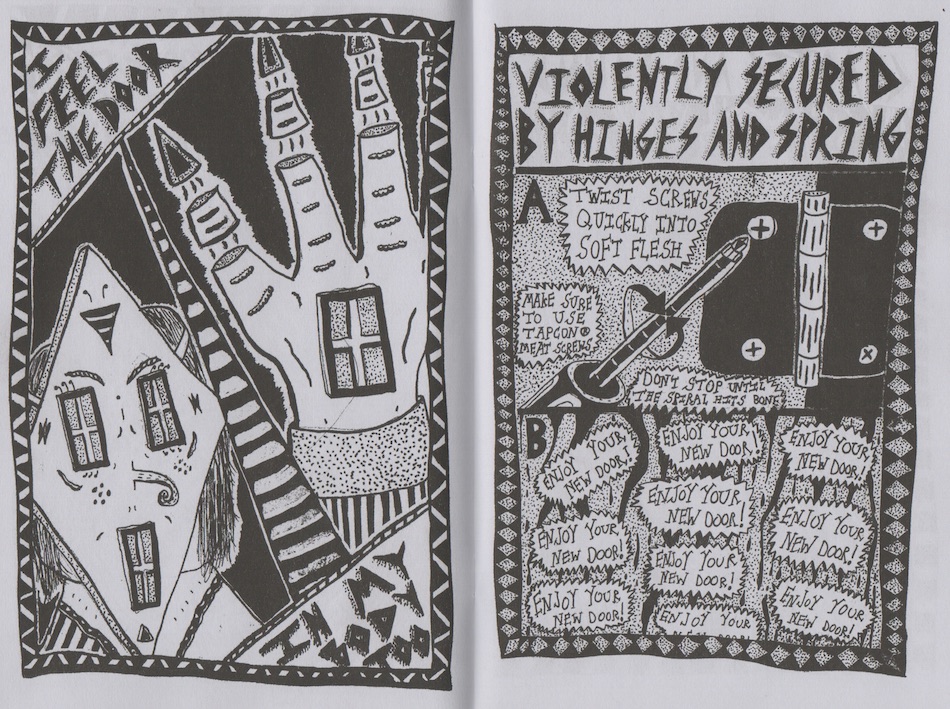 I
FEEL
THE DOOR
IN MY
BODY
TOO
VIOLENTLY SECURED
BY HINGES AND SPRING
A
TWIST SCREWS
QUICKLY INTO
SOFT FLESH
MAKE SURE
TO USE
TAPCON®
MEAT SCREWS
DON'T STOP UNTIL
THE SPIRAL HITS BONE!
B
ENJOY YOUR
NEW DOOR!
ENJOY YOUR
NEW DOOR!
ENJOY YOUR
NEW DOOR!
ENJOY YOUR
NEW DOOR
ENJOY YOUR
NEW DOOR!
ENJOY YOUR
NEW DOOR!
ENJOY YOUR
ENJOY YOUR
NEW DOOR!
ENJOY YOUR
NEW DOOR!
ENJOY YOUR
NEW DOOR!